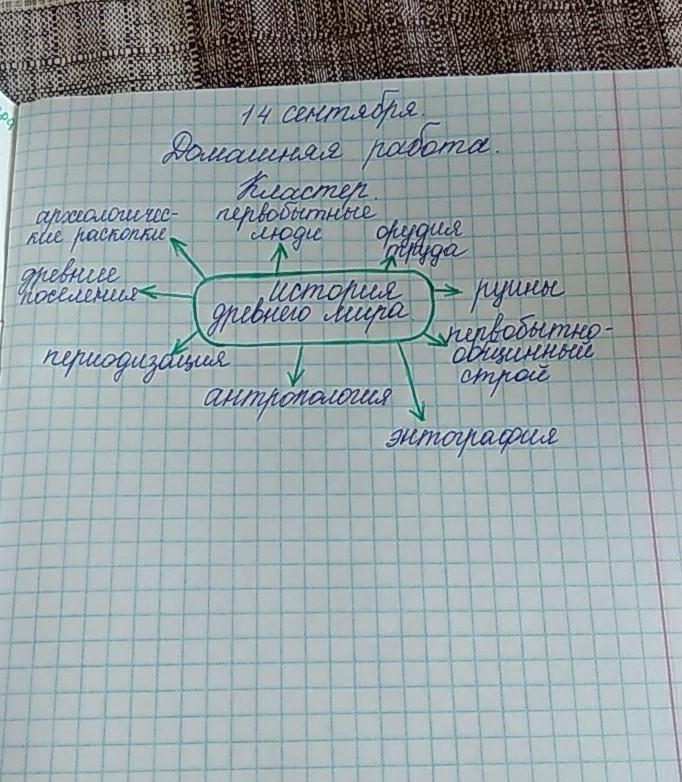 14 сентября.
Домашняя работа.
Кластер.
археологичес-
кие раскопки
первобытные
люди
орудия
труда
древние
поселения
история
древнего мира
руины
первобытно-
общинный
строй
периодизация
антропология
энтография